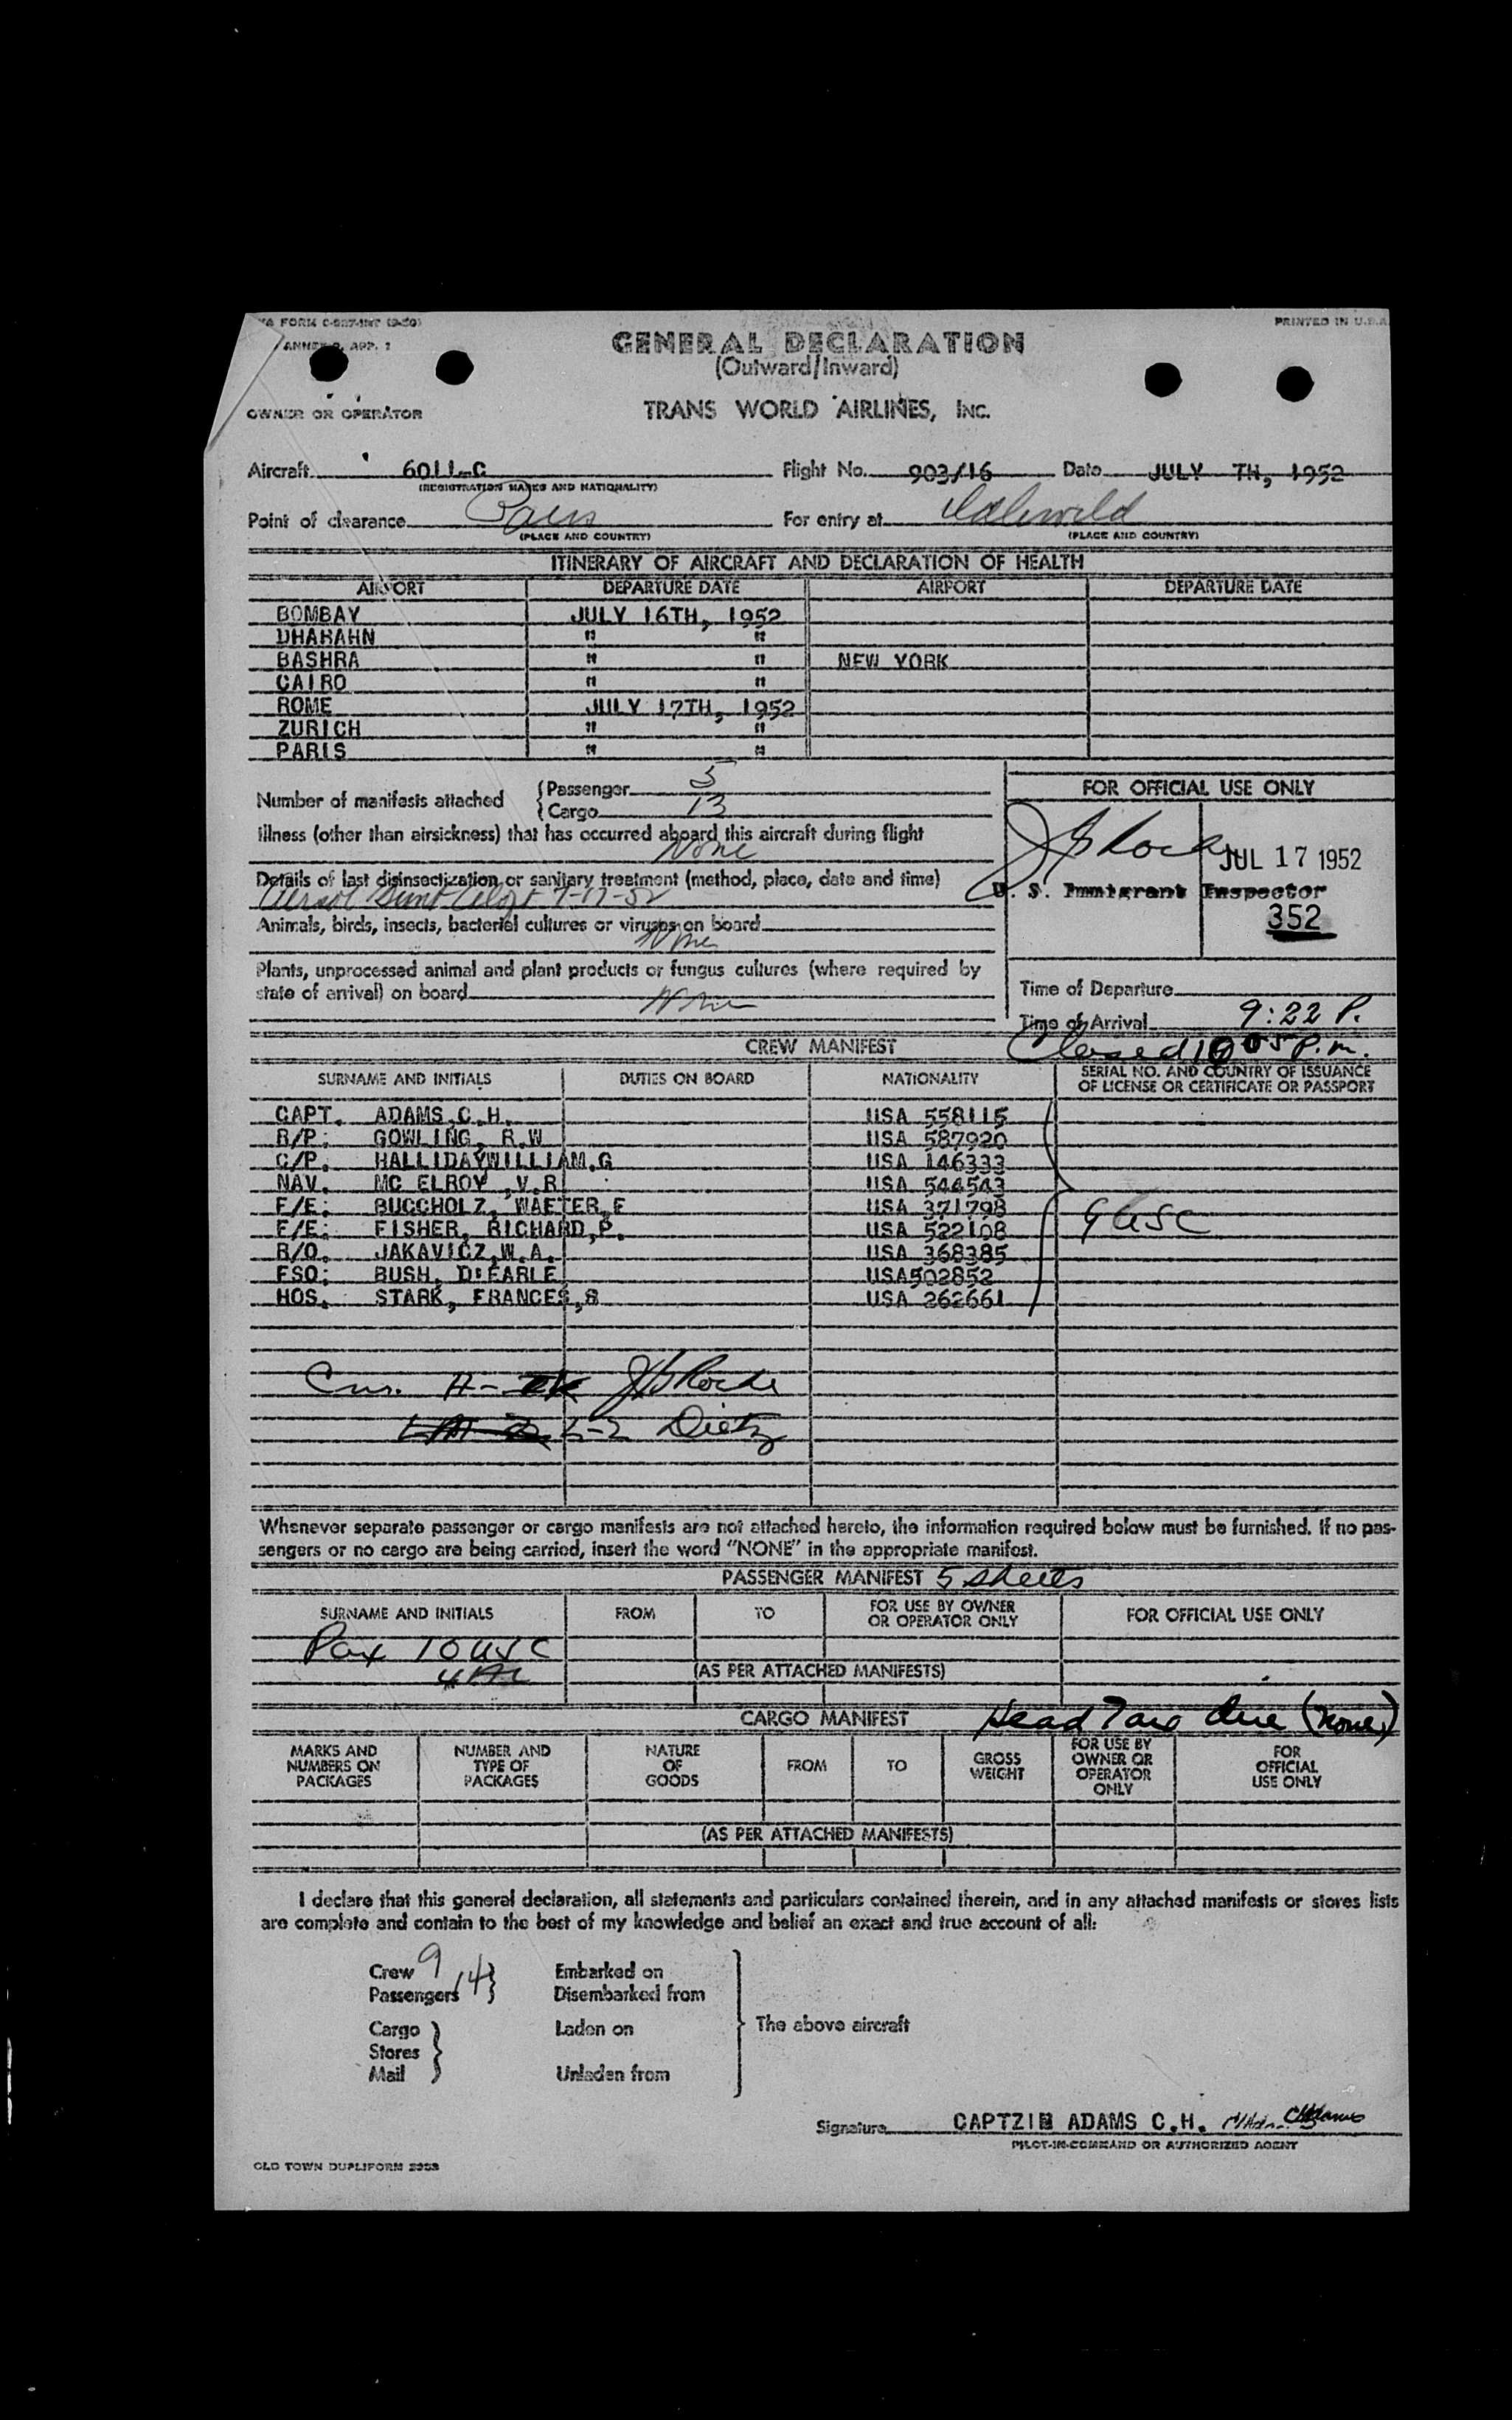 FORM C-927-INT (9-50)
PRINTED IN U.S.A.
ANNEX 9, APP. 1
GENERAL DECLARATION
(Outward/Inward)
OWNER OR OPERATOR
TRANS WORLD AIRLINES, INC.
Aircraft 6011-C Flight No. 903/16 Date JULY TH, 1952
(REGISTRATION MARKS AND NATIONALITY)
Point of clearance Paris For entry at Idlewild
(PLACE AND COUNTRY) (PLACE AND COUNTRY)
ITINERARY OF AIRCRAFT AND DECLARATION OF HEALTH
AIRPORT DEPARTURE DATE AIRPORT DEPARTURE DATE
BOMBAY JULY 16TH, 1952
DHARAHN " "
BASHRA " " NEW YORK
CAIRO " "
ROME JULY 17TH, 1952
ZURICH " "
PARIS " "
Number of manifests attached { Passenger 5
{ Cargo 13
FOR OFFICIAL USE ONLY
Illness (other than airsickness) that has occurred aboard this aircraft during flight
None
JUL 17 1952
Details of last disinsectization or sanitary treatment (method, place, date and time)
7-17-52
U. S. Immigrant Inspector
352
Animals, birds, insects, bacterial cultures or viruses on board
None
Plants, unprocessed animal and plant products or fungus cultures (where required by
state of arrival) on board None
Time of Departure
Time of Arrival 9:22 P.
Closed 10 05 P.m.
CREW MANIFEST
SURNAME AND INITIALS DUTIES ON BOARD NATIONALITY SERIAL NO. AND COUNTRY OF ISSUANCE
OF LICENSE OR CERTIFICATE OR PASSPORT
CAPT. ADAMS,C.H. USA 558115
R/P: GOWLING, R.W USA 587920
C/P. HALLIDAYWILLIAM.G USA 146333
NAV. MC ELROY ,V.R USA 544543
F/E: BUCCHOLZ, WAETER,E USA 371798
F/E: FISHER, RICHARD,P. USA 522108
R/O. JAKAVICZ,W.A. USA 368385
FSO: BUSH, D:EARLE USA502852
HOS. STARK, FRANCES,S USA 262661
9 USC
Cus. A- OK JJ Roche
2-2 Dietz
Whenever separate passenger or cargo manifests are not attached hereto, the information required below must be furnished. If no pas-
sengers or no cargo are being carried, insert the word "NONE" in the appropriate manifest.
PASSENGER MANIFEST 5 sheets
SURNAME AND INITIALS FROM TO FOR USE BY OWNER
OR OPERATOR ONLY FOR OFFICIAL USE ONLY
Pax 10 USC
4 AL
(AS PER ATTACHED MANIFESTS)
CARGO MANIFEST Head Tax due (none)
MARKS AND
NUMBERS ON
PACKAGES
NUMBER AND
TYPE OF
PACKAGES
NATURE
OF
GOODS
FROM
TO
GROSS
WEIGHT
FOR USE BY
OWNER OR
OPERATOR
ONLY
FOR
OFFICIAL
USE ONLY
(AS PER ATTACHED MANIFESTS)
I declare that this general declaration, all statements and particulars contained therein, and in any attached manifests or stores lists
are complete and contain to the best of my knowledge and belief an exact and true account of all:
Crew 9 Embarked on
Passengers 14 Disembarked from
Cargo Laden on The above aircraft
Stores
Mail Unladen from
Signature CAPTZIN ADAMS C.H. CHAdams
PILOT-IN-COMMAND OR AUTHORIZED AGENT
OLD TOWN DUPLIFORM 2903